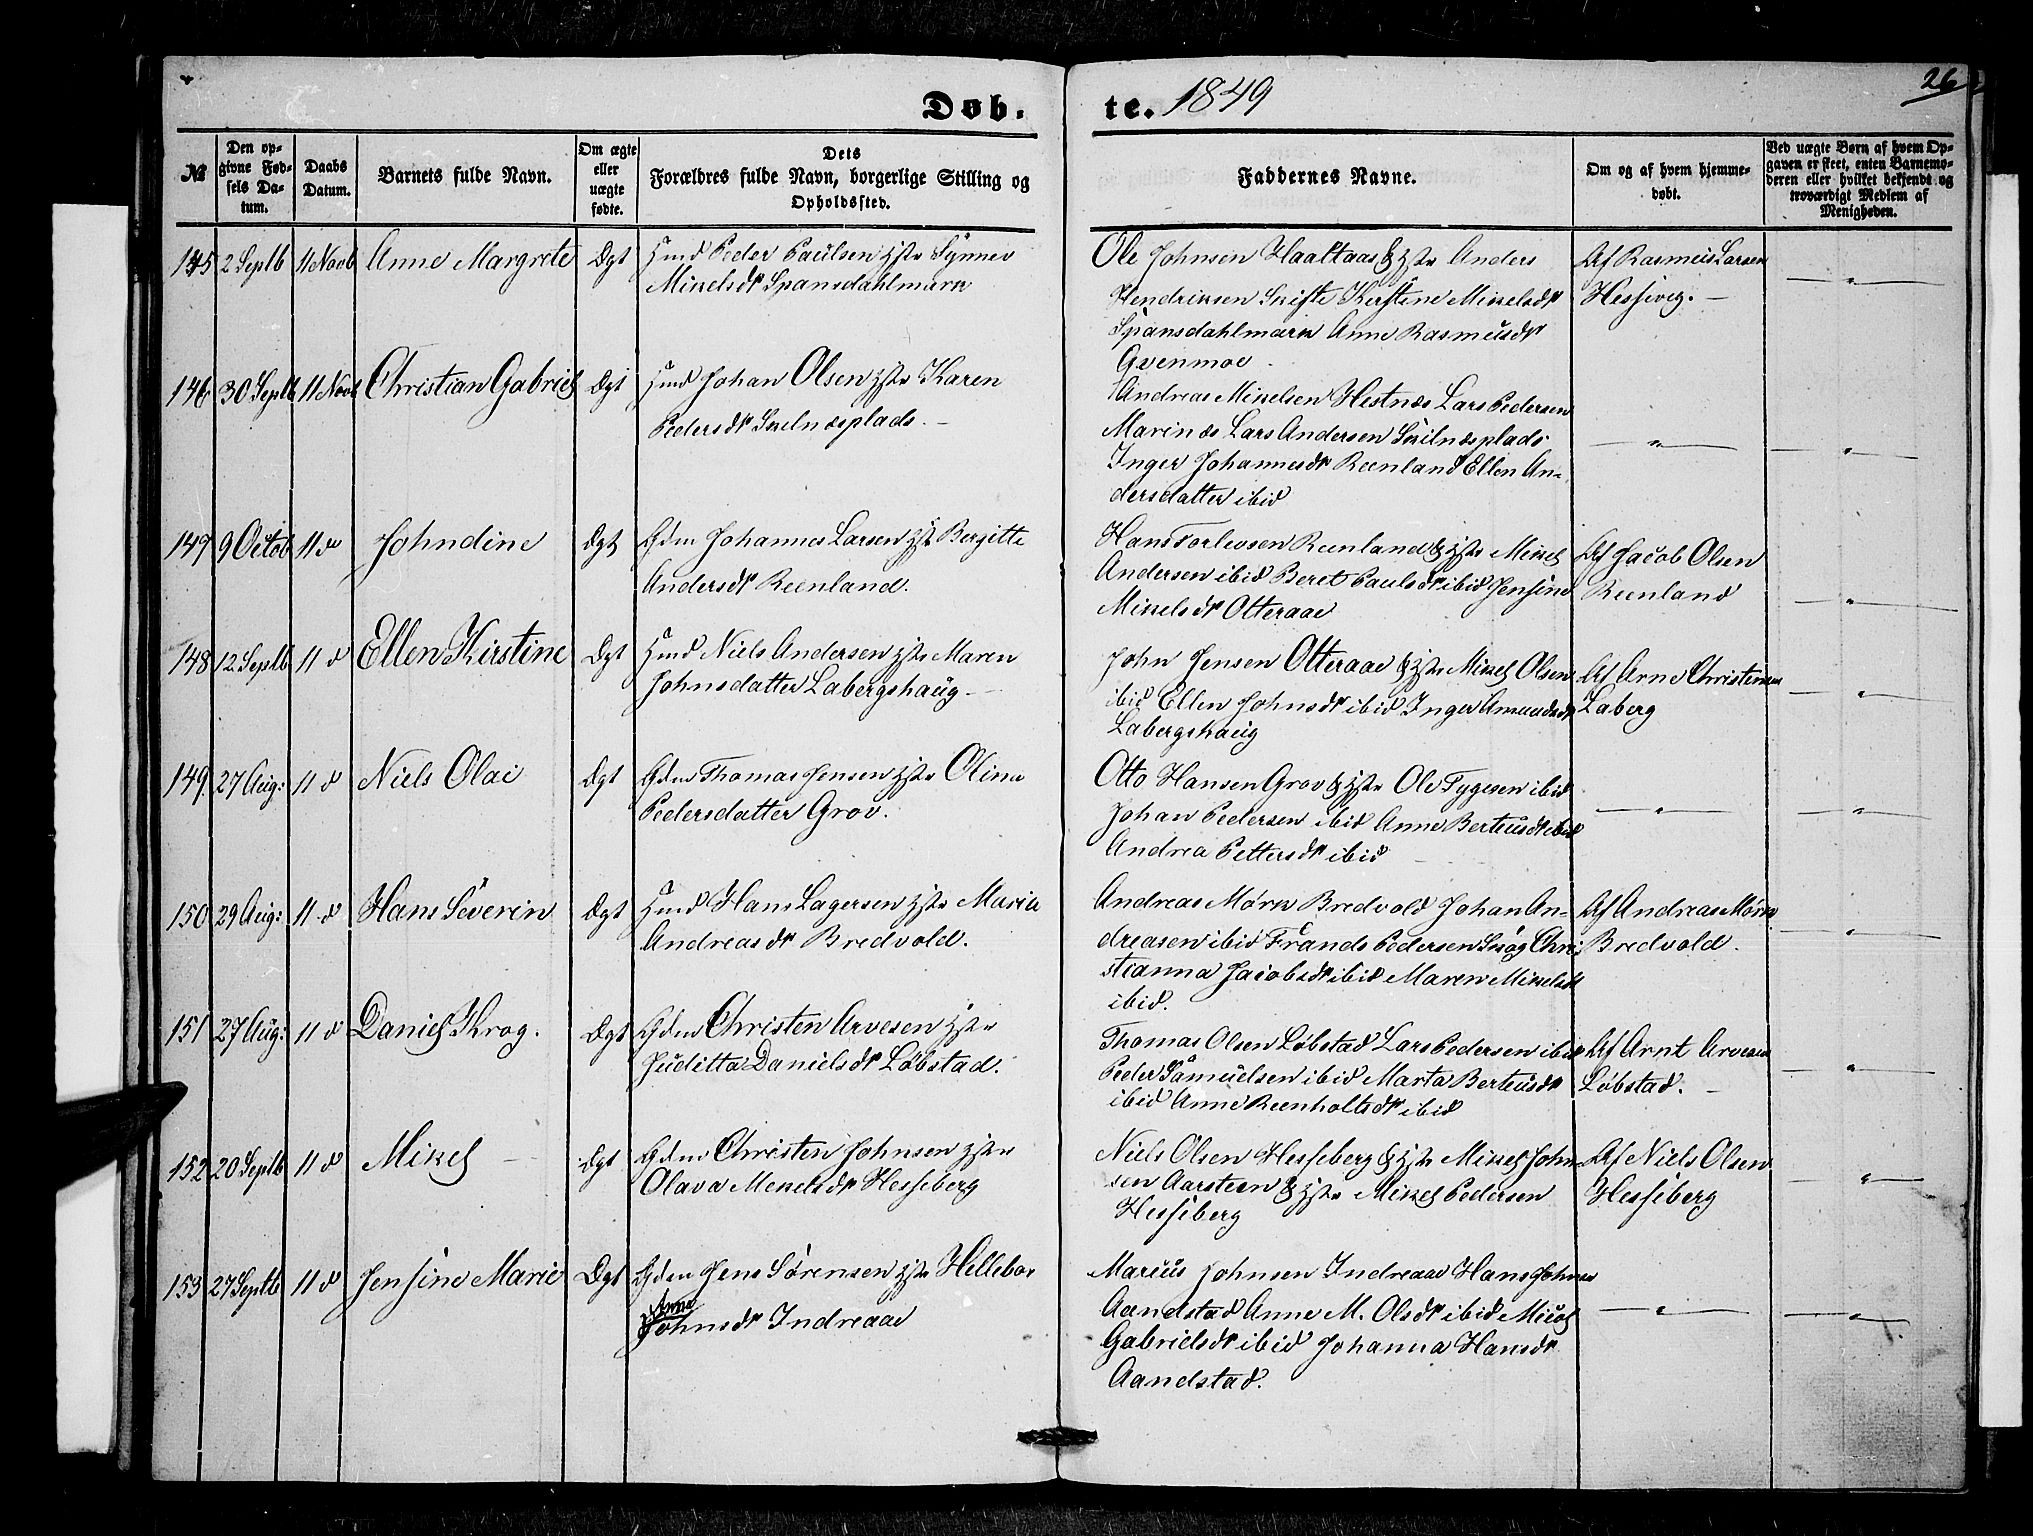 Døb.
te. 1849
26
№
Den opgivne Fødsels Datum.
Daabs Datum.
Barnets fulde Navn.
Om ægte eller uægte fødte.
Dets Forældres fulde Navn, borgerlige Stilling og Opholdssted.
Faddernes Navne.
Om og af hvem hjemmedøbt.
Ved uægte Børn af hvem Opgaven er skeet, enten Barnemoderen eller hvilket bekjendt og troværdigt Medlem af Menigheden.
145 2 Septb 11 Novb Anne Margrete Ægt Hmd Peder Paulsen Hst Synnev
Mikelsdr Spansdahlmark
Ole Johnsen Haaltaas & Hst Anders
Hendriksen Skifte Kirstine Mikelsdr
Spansdahlmark Anne Rasmusdr
Avenmoe
Af Rasmus Larsen
Hesseveg. —
146 30 Septb 11 Novb Christian Gabriel Ægt Hmd Johan Olsen Hst Karen
Pedersdr Skelnæsplads. —
Andreas Mikelsen Hestnæs Lars Pedersen
Marinæs Lars Andersen Skilnæsplads
Inger Johannesdr Reenland Ellen An-
dersdatter ibid
147 9 Octob 11 d Johndine Ægt Gdm Johannes Larsen Hst Bergitte
Andersdr Reenland.
Hans Torlevsen Reenland & Hst Mikel
Andersen ibid Beret Paulsdr ibid Jensine
Mikelsdr Otteraae
Af Jacob Olsen
Reenland
148 12 Septb 11 d Ellen Kirstine Ægt Hmd Niels Andersen Hst Maren
Johnsdatter Labergshaug —
John Jensen Otteraae & Hst Mikel Olsen
ibid Ellen Johnsdr ibid Inger Amundsdr
Labergshaug
Af Arne Christensen
Laberg
149. 27 Aug: 11 d Niels Olai Ægt Gdm Thomas Jensen Hst Oline
Pedersdatter Grov.
Otto Hansen Grov & Hst Ole Tygesen ibid
Johan Pedersen ibid Anne Berteusdr ibid
Andrea Pettersdr ibid
150 29 Aug: 11 d Hans Severin Ægt Hmd Hans Lagersen Hst Maria
Andreasdr Bredvold.
Andreas Mørk Bredvold Johan An-
dreasen ibid Frands Pedersen Skog Chri-
stianna Jacobsdr ibid Maren Mikelsdr
ibid.
Af Andreas Mørk
Bredvold.
151 27 Aug: 11 d Daniel Krog. Ægt Gdm Christen Arvesen Hst
Juditta Danielsdr Løbstad.
Thomas Olsen Løbstad Lars Pedersen ibid
Peder Samuelsen ibid Marta Berteusdr
ibid Anne Reenholtsdr ibid
Af Arnt Arvesen
Løbstad. —
152 20 Septb 11 d Mikel — Ægt Gdm Christen Johnsen Hst
Olava Mekelsdr Hesseberg
Niels Olsen Hesseberg & Hst Mikel John-
sen Aarsteen & Hst Mikel Pedersen
Hesseberg
Af Niels Olsen
Hesseberg
153 27 Septb 11 d Jensine Marie Ægt Gdm Jens Sørensen Hst Hellebor
Anne
Johnsdr Indreaae
Marius Johnsen Indreaae Hans Johns
Aandstad Anne M. Olsdr ibid
Gabrielsdr ibid Johanna Hansdr
Aandstad.